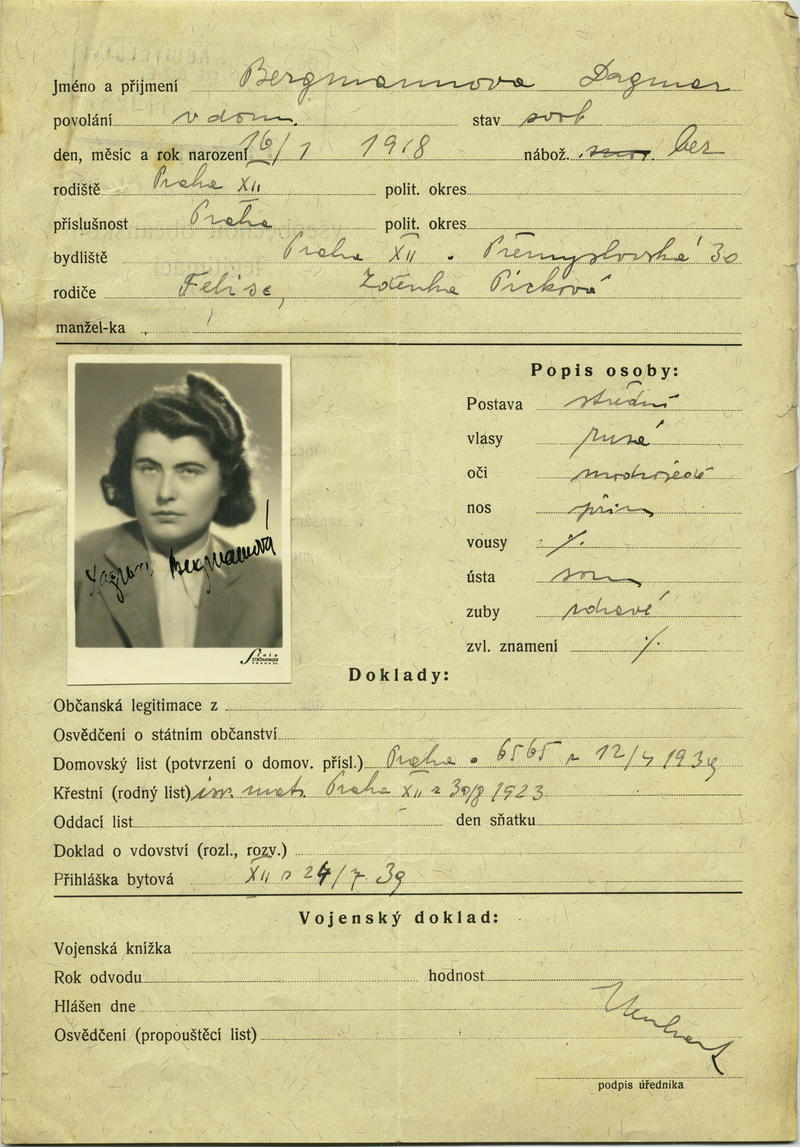 Jméno a příjmení Bergmannova Dagmar
povolání v dom. stav svob
den, měsíc a rok narození 16/1 1918 nábož. bez
rodiště Praha XII polit. okres
příslušnost Praha polit. okres
bydliště Praha XII. Přemyslovská 30
rodiče Zdeňka Picková
manžel-ka
Popis osoby:
Postava střední
vlasy rusé
oči modrošedé
nos přím
vousy ⁒
ústa soum
zuby zdravé
zvl. znamení ⁒
Dagmar Bergmannová
Foto
STRÖMINGER
Doklady:
Občanská legitimace z
Osvědčení o státním občanství
Domovský list (potvrzení o domov. přísl.) Praha 6565 12/4 1939
Křestní (rodný list) isr. mat. Praha XII 30/8 1923
Oddací list den sňatku
Doklad o vdovství (rozl., rozv.)
Přihláška bytová XII 24/7 39
Vojenský doklad:
Vojenská knížka
Rok odvodu hodnost
Hlášen dne
Osvědčení (propouštěcí list)
podpis úředníka